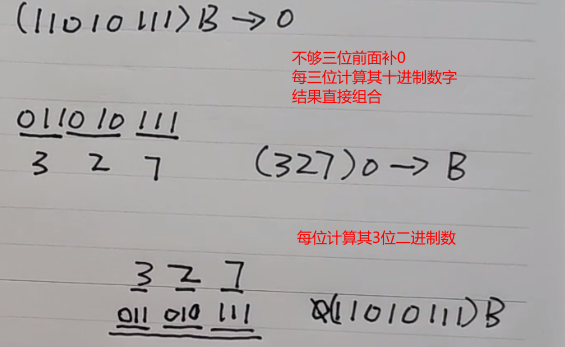 (11010111)B→O
不够三位前面补0
每三位计算其十进制数字
结果直接组合
011010111
3 2 7
(327)O→B
每位计算其3位二进制数
3 2 7
011 010 111
(11010111)B